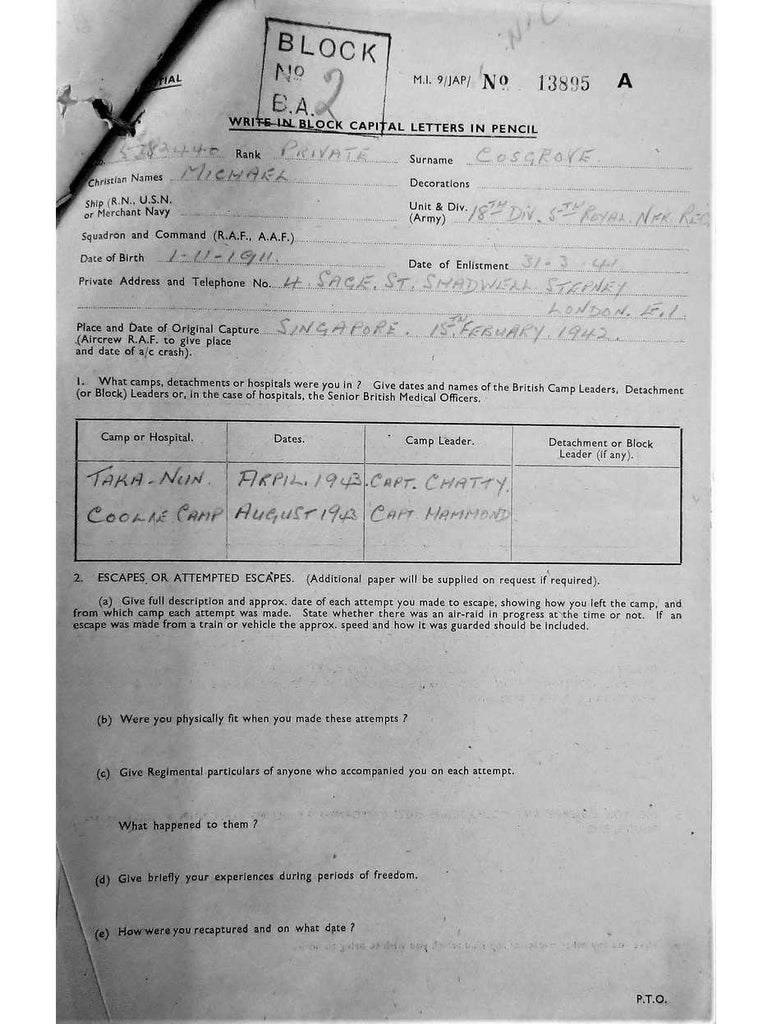 TIAL
BLOCK
No
B.A. 2
M.I. 9/JAP/ No 13895 A
WRITE IN BLOCK CAPITAL LETTERS IN PENCIL
Rank PRIVATE Surname COSGROVE
Christian Names MICHAEL Decorations
Ship (R.N., U.S.N. or Merchant Navy
Unit & Div. (Army) 18TH DIV. 5TH ROYAL. NFK. REG
Squadron and Command (R.A.F., A.A.F.)
Date of Birth 1-11-1911. Date of Enlistment 31-3-41
Private Address and Telephone No. 4. SAGE. ST. SHADWELL. STEPNEY
LONDON. E.1.
Place and Date of Original Capture SINGAPORE. 15TH FEBUARY. 1942.
(Aircrew R.A.F. to give place
and date of a/c crash).
1. What camps, detachments or hospitals were you in ? Give dates and names of the British Camp Leaders, Detachment
(or Block) Leaders or, in the case of hospitals, the Senior British Medical Officers.
Camp or Hospital. Dates. Camp Leader. Detachment or Block Leader (if any).
TAKA-NUN. ARPIL. 1943. CAPT. CHATTY.
COOLIE CAMP AUGUST 1943 CAPT HAMMOND
2. ESCAPES OR ATTEMPTED ESCAPES. (Additional paper will be supplied on request if required).
(a) Give full description and approx. date of each attempt you made to escape, showing how you left the camp, and
from which camp each attempt was made. State whether there was an air-raid in progress at the time or not. If an
escape was made from a train or vehicle the approx. speed and how it was guarded should be included.
(b) Were you physically fit when you made these attempts ?
(c) Give Regimental particulars of anyone who accompanied you on each attempt.
What happened to them ?
(d) Give briefly your experiences during periods of freedom.
(e) How were you recaptured and on what date ?
P.T.O.